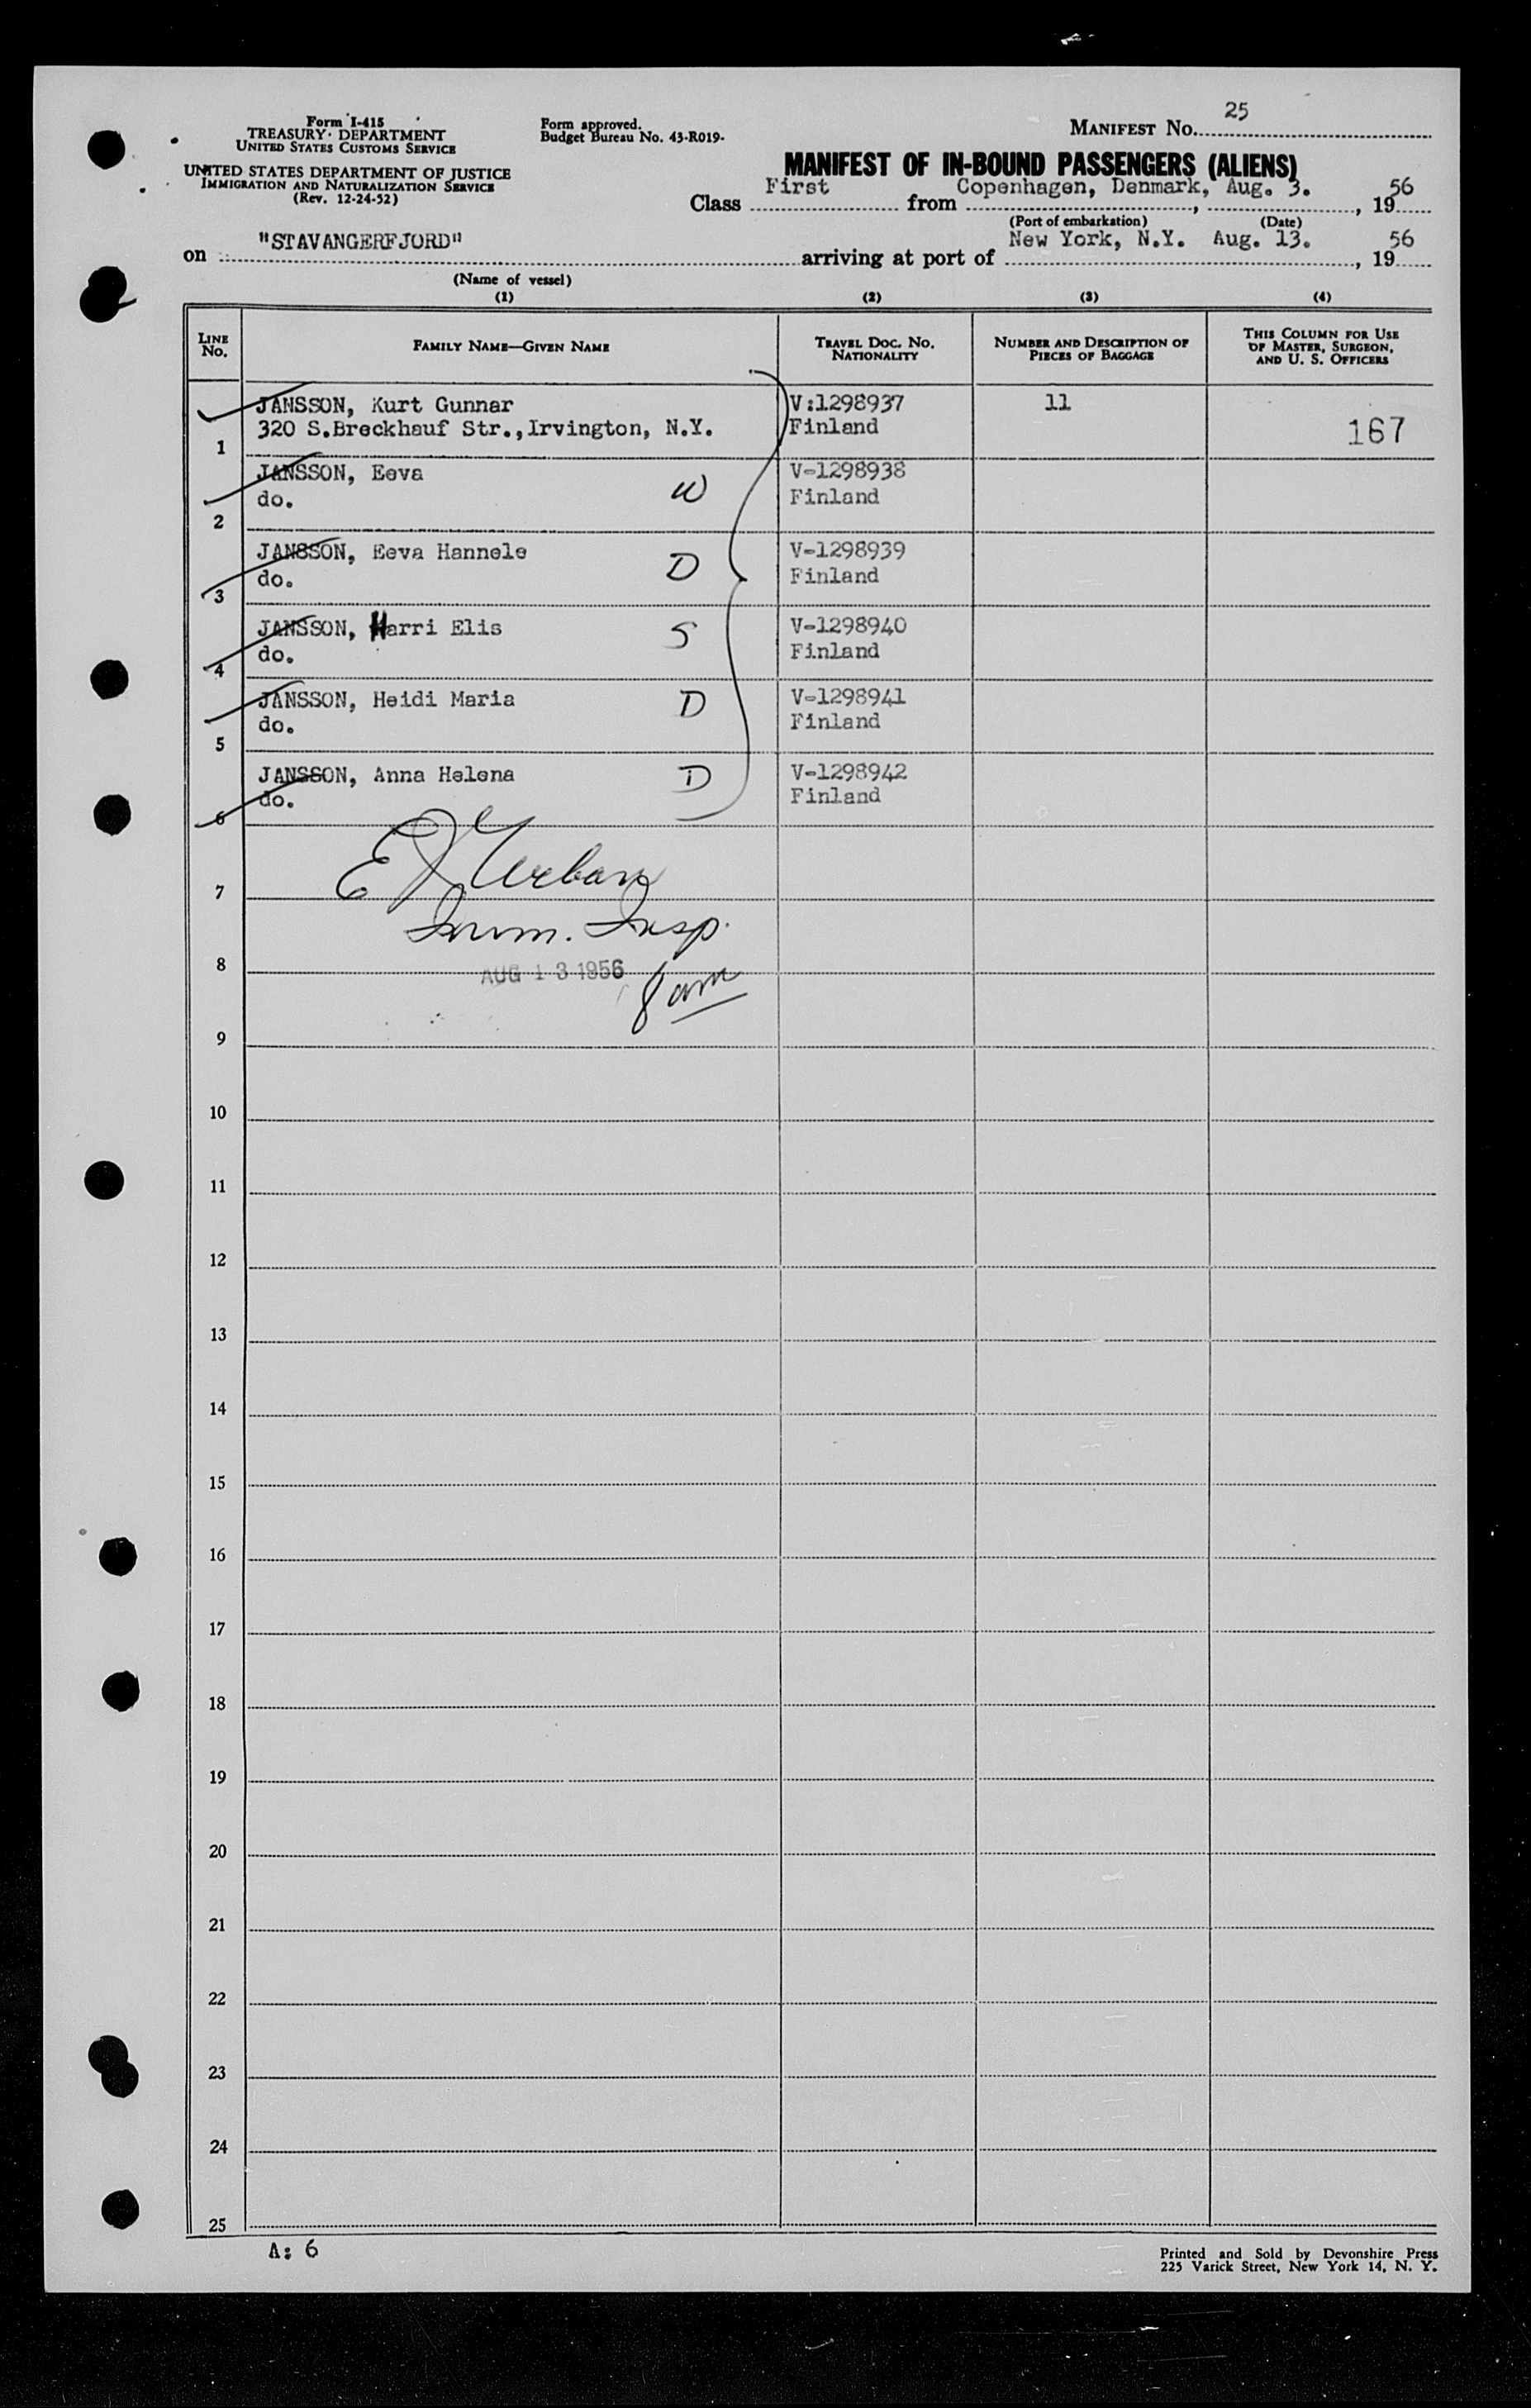 Form I-415
TREASURY DEPARTMENT
UNITED STATES CUSTOMS SERVICE
UNITED STATES DEPARTMENT OF JUSTICE
IMMIGRATION AND NATURALIZATION SERVICE
(Rev. 12-24-52)
Form approved.
Budget Bureau No. 43-R019-
MANIFEST No. 25
MANIFEST OF IN-BOUND PASSENGERS (ALIENS)
Class First from Copenhagen, Denmark, Aug. 3., 1956
(Port of embarkation) (Date)
on "STAVANGERFJORD" arriving at port of New York, N.Y. Aug. 13., 1956
(Name of vessel)
(1) (2) (3) (4)
LINE No. FAMILY NAME—GIVEN NAME TRAVEL DOC. NO. NATIONALITY NUMBER AND DESCRIPTION OF PIECES OF BAGGAGE THIS COLUMN FOR USE OF MASTER, SURGEON, AND U. S. OFFICERS
JANSSON, Kurt Gunnar V:1298937 11
1 320 S.Breckhauf Str.,Irvington, N.Y. Finland 167
JANSSON, Eeva W V-1298938
2 do. Finland
JANSSON, Eeva Hannele D V-1298939
3 do. Finland
JANSSON, Harri Elis S V-1298940
4 do. Finland
JANSSON, Heidi Maria D V-1298941
5 do. Finland
JANSSON, Anna Helena D V-1298942
6 do. Finland
E J Urban
7
Imm. Insp.
8 AUG 13 1956
8 am
9
10
11
12
13
14
15
16
17
18
19
20
21
22
23
24
25
A: 6
Printed and Sold by Devonshire Press
225 Varick Street, New York 14, N. Y.